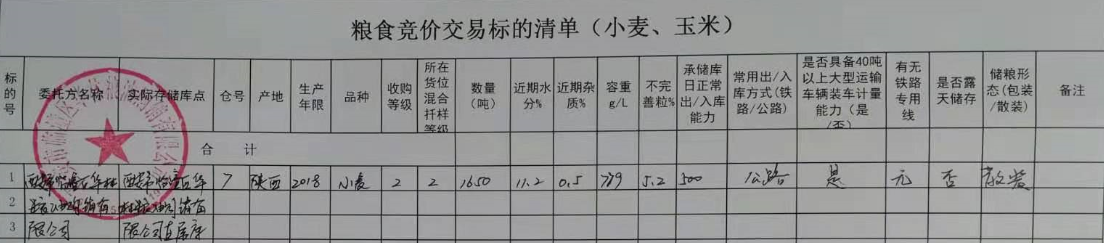 粮食竞价交易标的清单（小麦、玉米）
标的号 委托方名称 实际存储库点 仓号 产地 生产年限 品种 收购等级 所在货位混合扦样等级 数量（吨） 近期水分% 近期杂质% 容重g/L 不完善粒% 承储库日正常出/入库能力 常用出/入库方式(铁路/公路) 是否具备40吨以上大型运输车辆装车计量能力（是/否） 有无铁路专用线 是否露天储存 储粮形态(包装/散装) 备注
合 计
1 7 陕西 2018 小麦 2 2 1650 11.2 0.5 789 5.2 500 公路 是 无 否 散装
2
3 限公司 限公司直属库